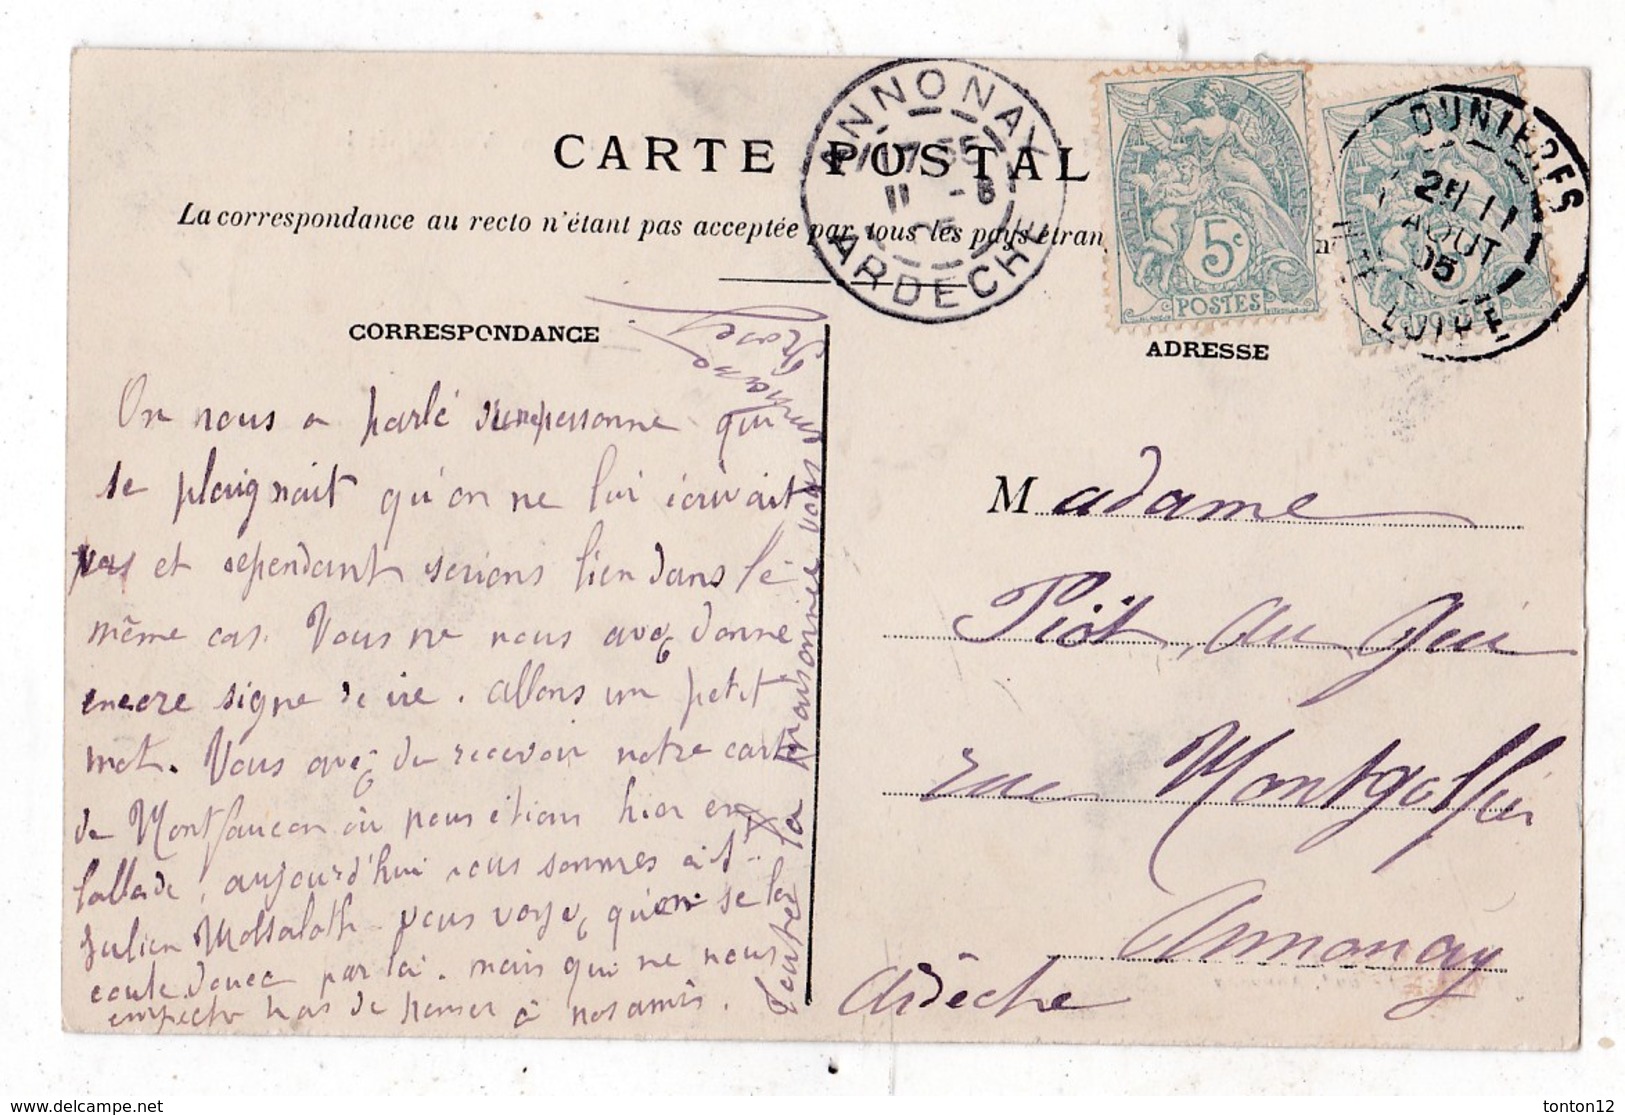 CARTE POSTAL
La correspondance au recto n'étant pas acceptée par tous les pays étran
CORRESPONDANCE
ADRESSE
ANNONAY
11 -8
05
ARDECHE
5c
POSTES
DUNIERES
AOUT
05
LOIRE
On nous a parlé d'une personne qui
se plaignait qu'on ne lui écrivait
pas et cependant serions bien dans le
même cas. Vous ne nous avez donne
encore signe de vie. allons un petit
mot. Vous avez du recevoir notre carte
de Montfaucon où nous étions hier en
ballade, aujourd'hui nous sommes à St
Julien Molhesabate vous voyez qu'on se la
coule douce par là. mais qui ne nous
empeche pas de penser à nos amis.
toute la maisonnée vous
Madame
Piot, au Gui
rue Montgolfier
Annonay
Ardèche
tonton12